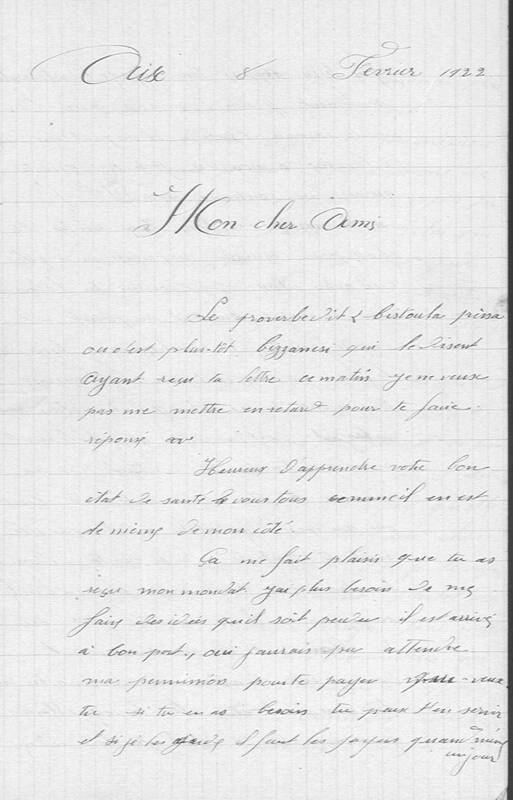 Aix 8 Fevrier 1922
Mon cher Ami
Le proverbe dit &
ou c'est plus-tôt qui le disent
Ayant reçu ta lettre ce matin je ne veux
pas me mettre en retard pour te faire
réponse
Heureux d'apprendre votre bon
état de santé à vous tous comme il en est
de même de mon côté.
Ça me fait plaisir que tu as
reçu mon mandat j'ai plus besoin de me
faire des idées qu'il soit perdu il est arrivé
à bon port, oui j'aurais pu attendre
ma permission pour te payer veux
tu si tu en as besoin tu peux t'en servir
et si je les il faut les payer quand même
un jour